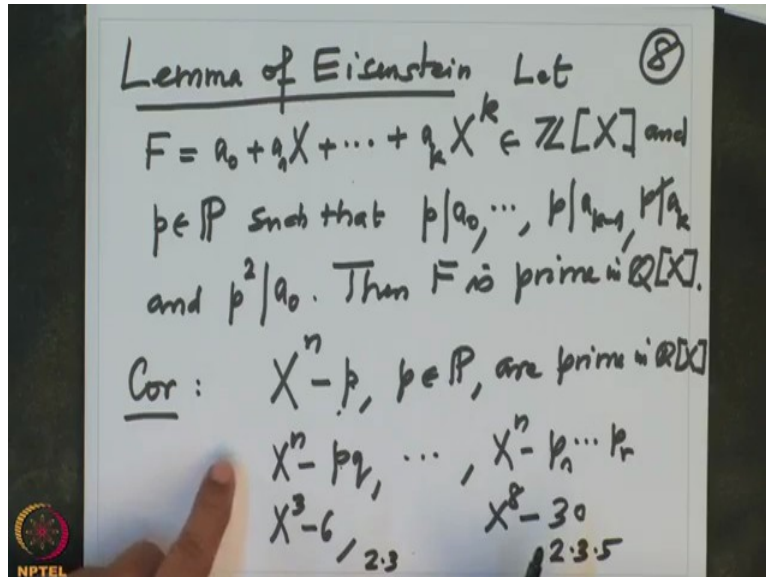 Lemma of Eisenstein Let ⑧
F = a₀ + a₁X + ··· + aₖXᵏ ∈ ℤ[X] and
p∈ℙ such that p|a₀, ···, p|aₖ₋₁, p∤aₖ
and p²|a₀. Then F is prime in ℚ[X].
Cor : Xⁿ - p, p∈ℙ, are prime in ℚ[X]
Xⁿ - pq, ··· , Xⁿ - p₁ ··· pᵣ
X³ - 6, 2·3 X⁸ - 30 2·3·5
NPTEL